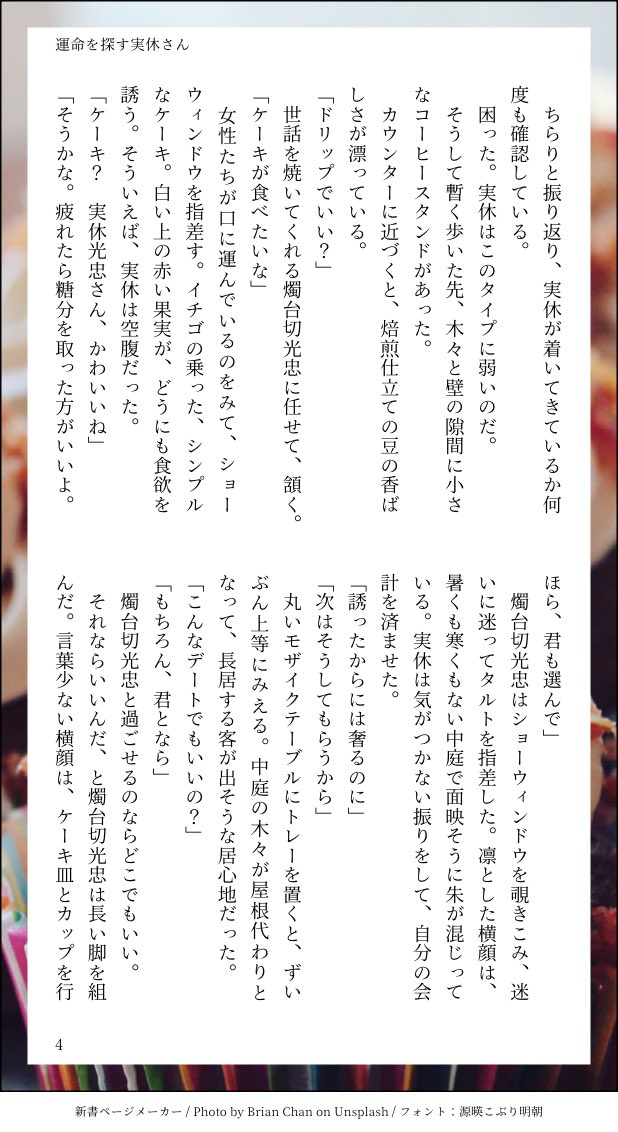 運命を探す実休さん
　ちらりと振り返り、実休が着いてきているか何
度も確認している。
　困った。実休はこのタイプに弱いのだ。
　そうして暫く歩いた先、木々と壁の隙間に小さ
なコーヒースタンドがあった。
　カウンターに近づくと、焙煎仕立ての豆の香ば
しさが漂っている。
「ドリップでいい？」
　世話を焼いてくれる燭台切光忠に任せて、頷く。
「ケーキが食べたいな」
　女性たちが口に運んでいるのをみて、ショー
ウィンドウを指差す。イチゴの乗った、シンプル
なケーキ。白い上の赤い果実が、どうにも食欲を
誘う。そういえば、実休は空腹だった。
「ケーキ？　実休光忠さん、かわいいね」
「そうかな。疲れたら糖分を取った方がいいよ。
ほら、君も選んで」
　燭台切光忠はショーウィンドウを覗きこみ、迷
いに迷ってタルトを指差した。凛とした横顔は、
暑くも寒くもない中庭で面映そうに朱が混じって
いる。実休は気がつかない振りをして、自分の会
計を済ませた。
「誘ったからには奢るのに」
「次はそうしてもらうから」
　丸いモザイクテーブルにトレーを置くと、ずい
ぶん上等にみえる。中庭の木々が屋根代わりと
なって、長居する客が出そうな居心地だった。
「こんなデートでもいいの？」
「もちろん、君となら」
　燭台切光忠と過ごせるのならどこでもいい。
　それならいいんだ、と燭台切光忠は長い脚を組
んだ。言葉少ない横顔は、ケーキ皿とカップを行
4
新書ページメーカー / Photo by Brian Chan on Unsplash / フォント：源暎こぶり明朝